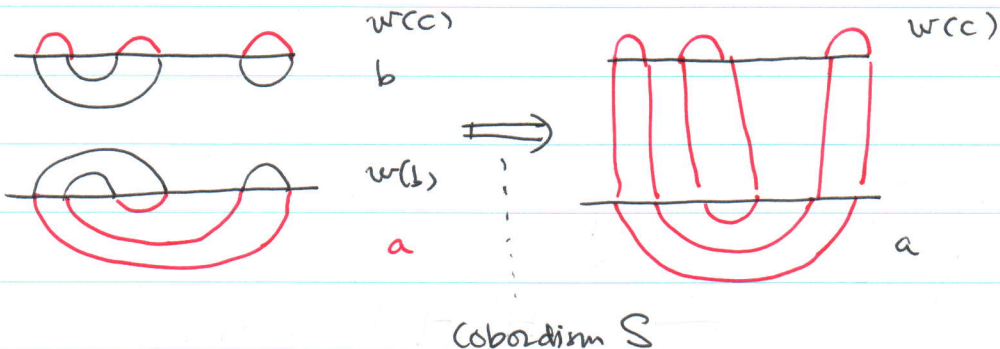 W(c)
b
W(b)
a
W(c)
a
Cobordism S